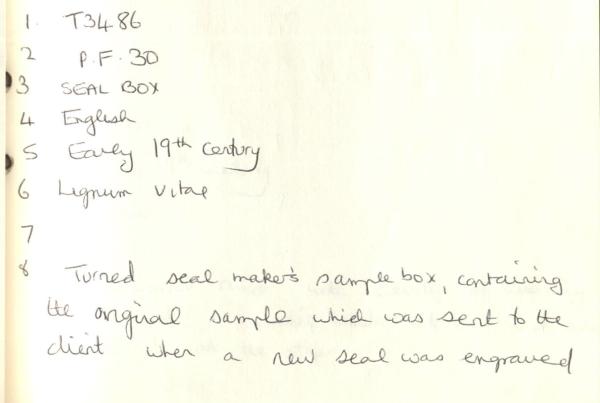 1. T3486
2 P.F. 30
3 SEAL BOX
4 English
5 Early 19th Century
6 Lignum Vitae
7
8 Turned seal maker's sample box, containing
the original sample which was sent to the
client when a new seal was engraved